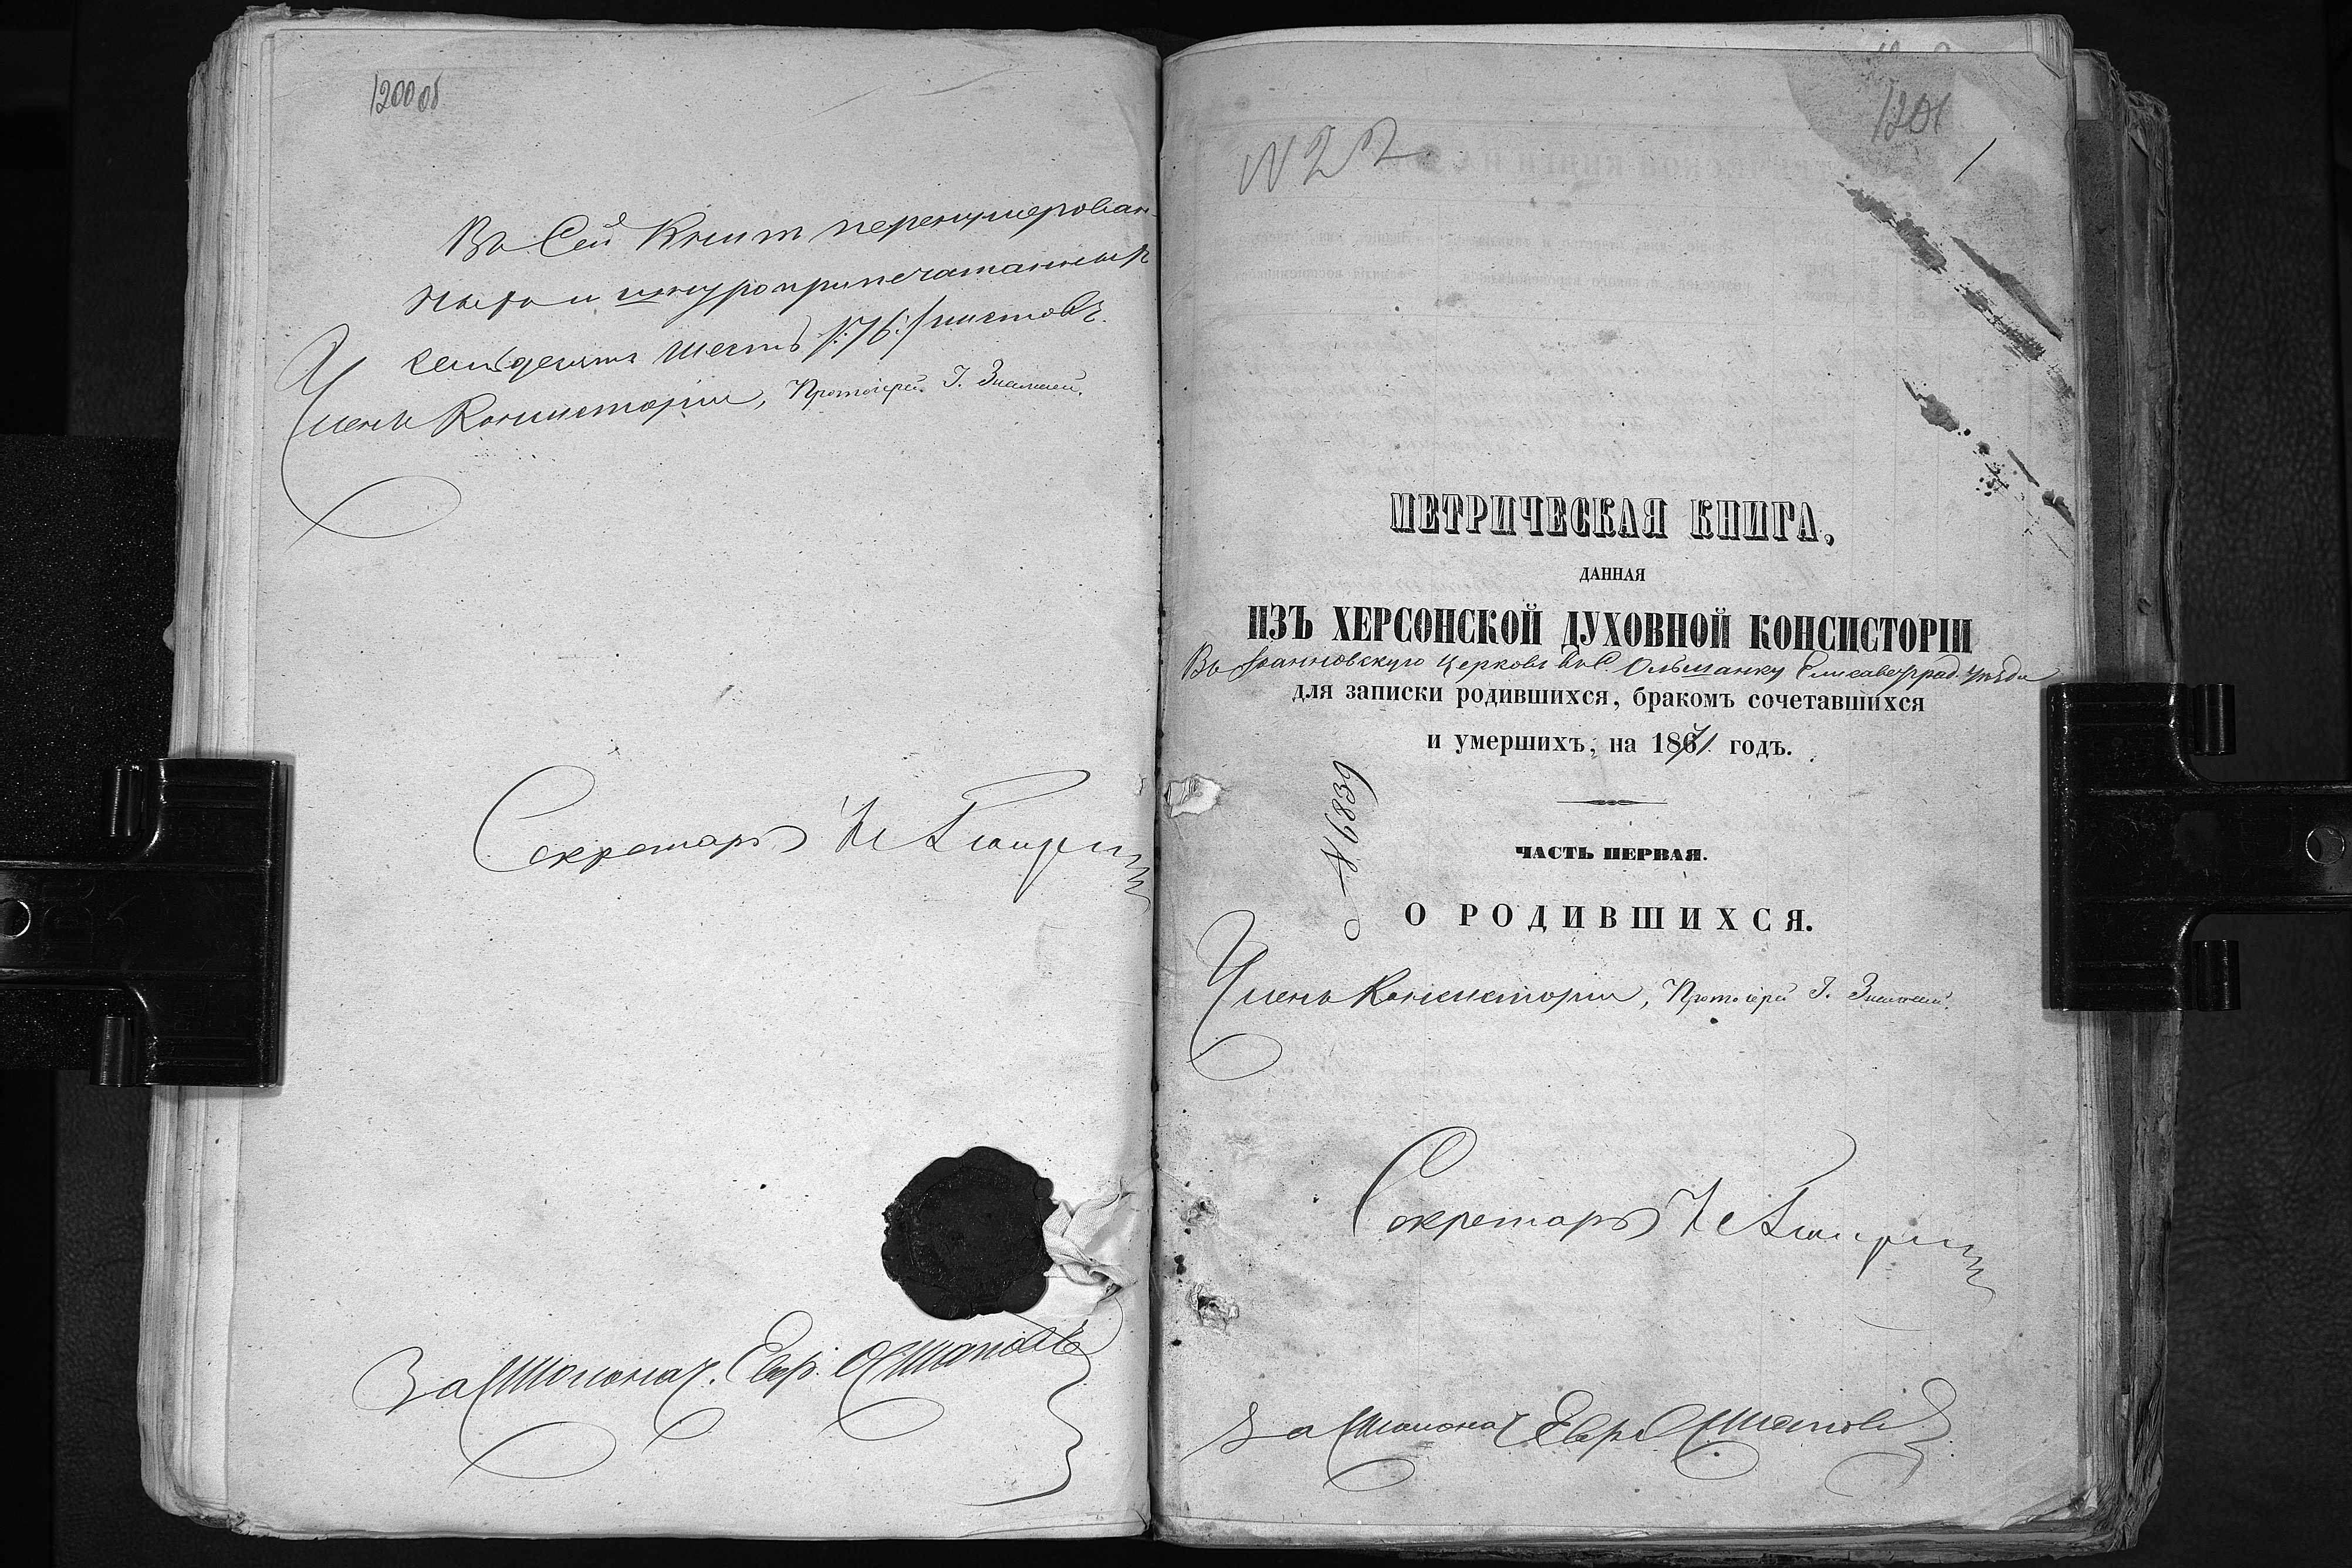 1200 об
Въ Сей Книгѣ перенумерован-
ныхъ и шнуроприпечатанныхъ
семьдесятъ шесть /:76:/ листовъ.
Членъ Консисторіи, Протоіерей І. Знаменскій.
Секретарь
За Столонач. Евр.
1201
1
N 22
МЕТРИЧЕСКАЯ КНИГА,
ДАННАЯ
ИЗЪ ХЕРСОНСКОЙ ДУХОВНОЙ КОНСИСТОРІИ
Въ Іоанновскую церковь въ С. Ольшанку Елисаветград. уѣзда
для записки родившихся, бракомъ сочетавшихся
и умершихъ, на 1871 годъ.
№ 6839
ЧАСТЬ ПЕРВАЯ.
О РОДИВШИХСЯ.
Членъ Консисторіи, Протоіерей І. Знаменскій.
Секретарь
За Столонач. Евр.